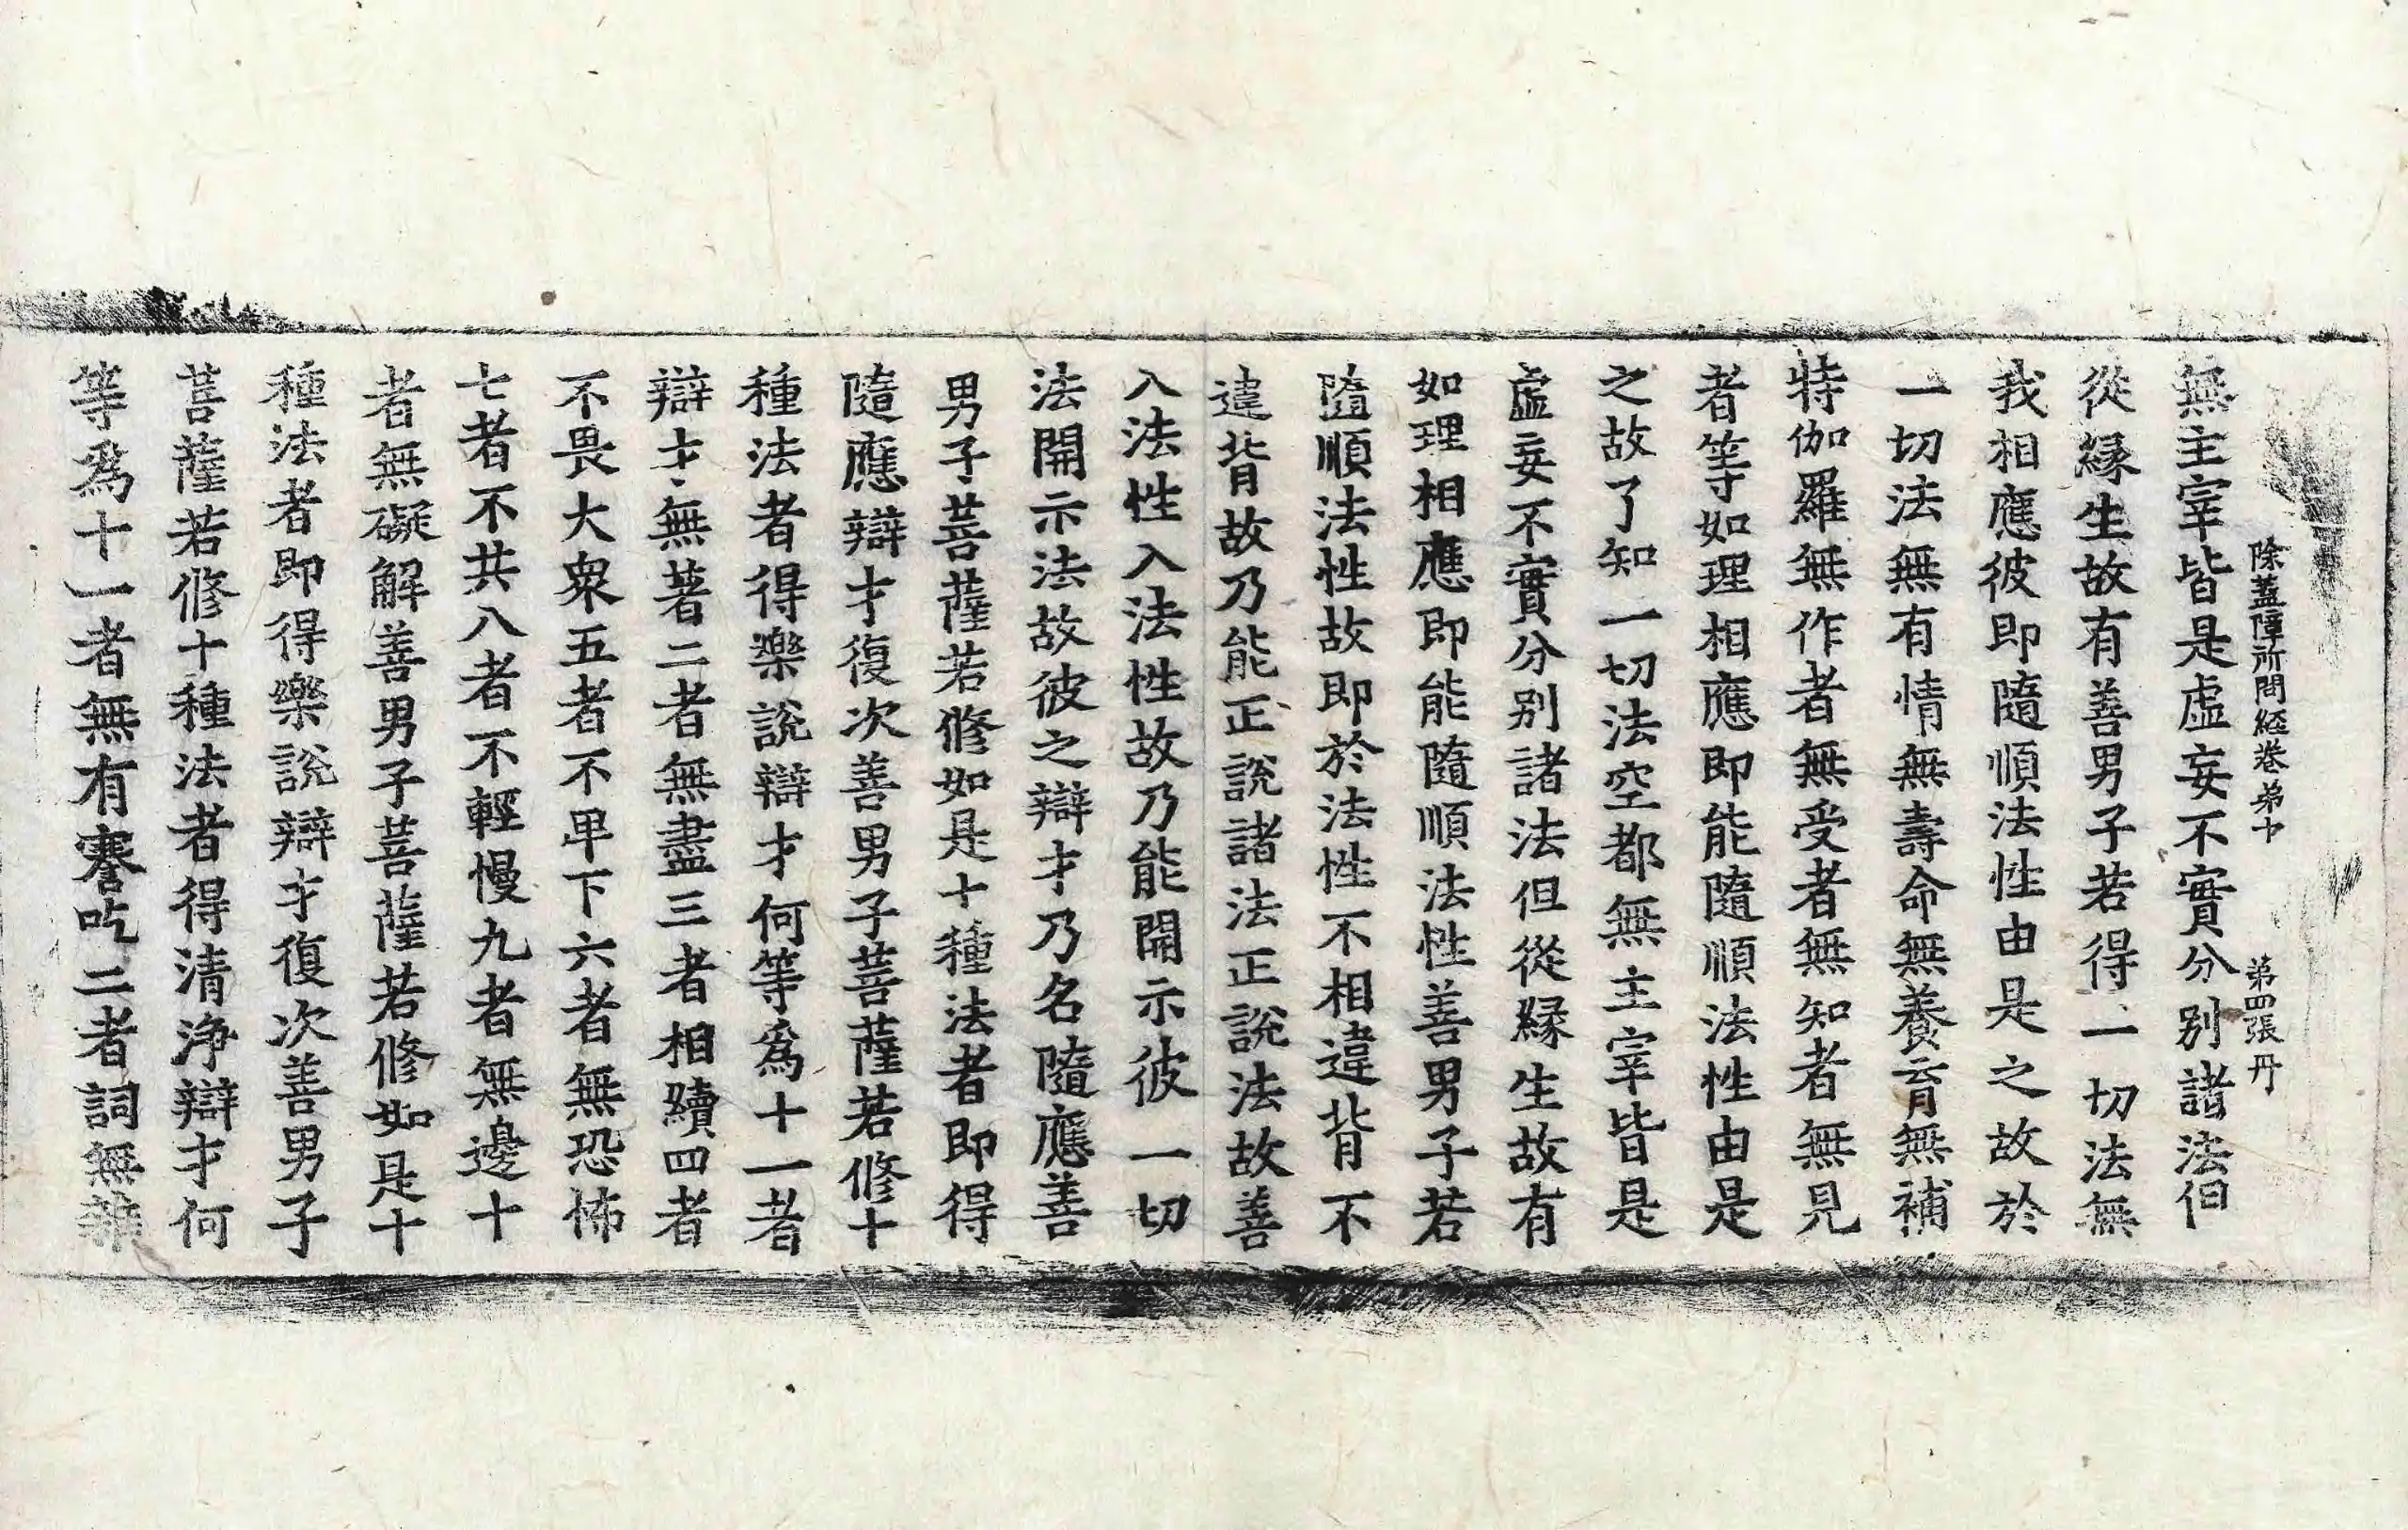 除蓋障所問經卷苐十　苐四張　丹
無主宰皆是虛妄不實分別諸法但
從緣生故有善男子若得一切法無
我相應彼即隨順法性由是之故於
一切法無有情無壽命無養育無補
特伽羅無作者無受者無知者無見
者等如理相應即能隨順法性由是
之故了知一切法空都無主宰皆是
虛妄不實分別諸法但從緣生故有
如理相應即能隨順法性善男子若
隨順法性故即於法性不相違背不
違背故乃能正說諸法正說法故善
入法性入法性故乃能開示彼一切
法開示法故彼之辯才乃名隨應善
男子菩薩若修如是十種法者即得
隨應辯才復次善男子菩薩若修十
種法者得樂說辯才何等為十一者
辯才無著二者無盡三者相續四者
不畏大衆五者不卑下六者無恐怖
七者不共八者不輕慢九者無邊十
者無礙解善男子菩薩若修如是十
種法者即得樂說辯才復次善男子
菩薩若修十種法者得清淨辯才何
等為十一者無有謇吃二者詞無雜